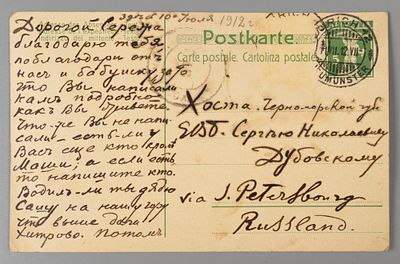 10го Июля 1912 г
Дорогой Сережа
благодарю тебя
поблагодари отъ
насъ и бабушку
что Вы написали
намъ подробно
какъ Вы живете.
Что-же Вы не напи-
сали-есть-ли у
Васъ еще кто кроме
Маши; а если есть
то напишите кто.
Водилъ-ли ты дядю
Сашу на нашу гору
что выше дачи
Хитрово. Потомъ
Postkarte.
Carte postale. Cartolina postale
Хоста. Черноморской губ
ЕВБ. Сергѣю Николаевичу
Дубовскому
via S. Petersbourg
Russland.